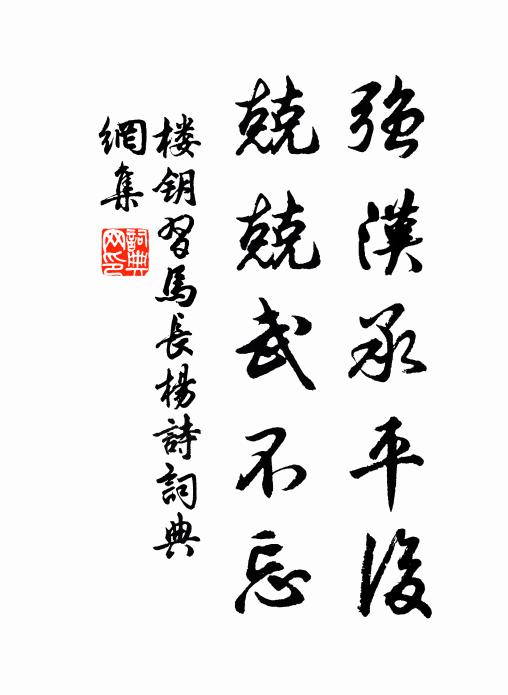 強漢承平後
兢兢武不忘
楼钥習馬長楊詩詞典
網集
詞典
网印